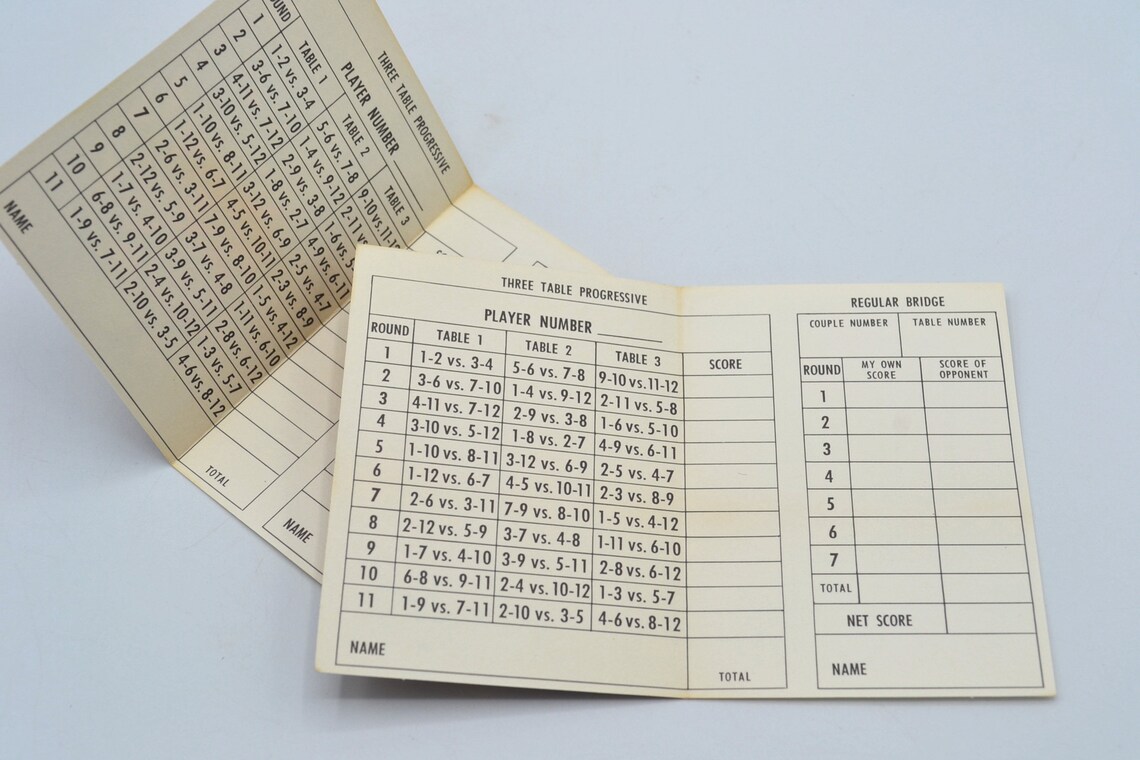 THREE TABLE PROGRESSIVE
PLAYER NUMBER
ROUND TABLE 1 TABLE 2 TABLE 3
1 1-2 vs. 3-4 5-6 vs. 7-8 9-10 vs. 11-
2 3-6 vs. 7-10 1-4 vs. 9-12 2-11
3 4-11 vs. 7-12 2-9 vs. 3-8 1-6
4 3-10 vs. 5-12 1-8 vs. 2-7 4-9 vs. 6-11
5 1-10 vs. 8-11 3-12 vs. 6-9 2-5 vs. 4-7
6 1-12 vs. 6-7 4-5 vs. 10-11 2-3 vs. 8-9
7 2-6 vs. 3-11 7-9 vs. 8-10 1-5 vs. 4-12
8 2-12 vs. 5-9 3-7 vs. 4-8 1-11 vs. 6-10
9 1-7 vs. 4-10 3-9 vs. 5-11 2-8 vs. 6-12
10 6-8 vs. 9-11 2-4 vs. 10-12 1-3 vs. 5-7
11 1-9 vs. 7-11 2-10 vs. 3-5 4-6 vs. 8-12
NAME
TOTAL
NAME
THREE TABLE PROGRESSIVE
PLAYER NUMBER
ROUND TABLE 1 TABLE 2 TABLE 3 SCORE
1 1-2 vs. 3-4 5-6 vs. 7-8 9-10 vs. 11-12
2 3-6 vs. 7-10 1-4 vs. 9-12 2-11 vs. 5-8
3 4-11 vs. 7-12 2-9 vs. 3-8 1-6 vs. 5-10
4 3-10 vs. 5-12 1-8 vs. 2-7 4-9 vs. 6-11
5 1-10 vs. 8-11 3-12 vs. 6-9 2-5 vs. 4-7
6 1-12 vs. 6-7 4-5 vs. 10-11 2-3 vs. 8-9
7 2-6 vs. 3-11 7-9 vs. 8-10 1-5 vs. 4-12
8 2-12 vs. 5-9 3-7 vs. 4-8 1-11 vs. 6-10
9 1-7 vs. 4-10 3-9 vs. 5-11 2-8 vs. 6-12
10 6-8 vs. 9-11 2-4 vs. 10-12 1-3 vs. 5-7
11 1-9 vs. 7-11 2-10 vs. 3-5 4-6 vs. 8-12
NAME
TOTAL
REGULAR BRIDGE
COUPLE NUMBER TABLE NUMBER
ROUND MY OWN SCORE SCORE OF OPPONENT
1
2
3
4
5
6
7
TOTAL
NET SCORE
NAME